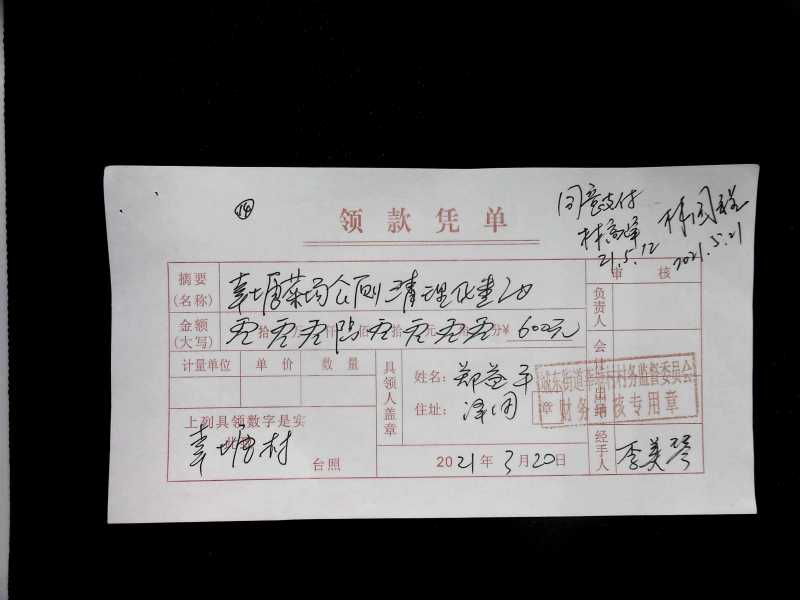 ⑭
领款凭单
同意支付
21.5.12
2021.5.21
摘要
(名称)
幸塘菜场公厕清理化粪池
审核
金额
(大写)
零拾零万零仟陆佰零拾零元零角零分¥600元
负责人
计量单位 单价 数量
具领人盖章
姓名：郑益平
住址：泽国
会计
出纳
城东街道幸塘村村务监督委员会
财务审核专用章
上列具领数字是实
此致
幸塘村
台照
2021年3月20日
经手人
李美琴